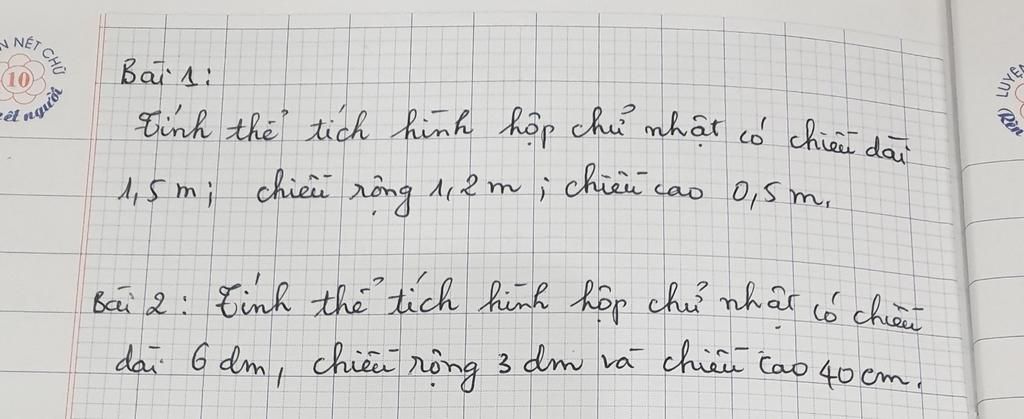 N NÉT CHỮ
10
ết người
LUYỆN
Rèn
Bài 1:
Tính thể tích hình hộp chữ nhật có chiều dài
1,5 m; chiều rộng 1,2 m; chiều cao 0,5 m.
Bài 2: Tính thể tích hình hộp chữ nhật có chiều
dài 6 dm, chiều rộng 3 dm và chiều cao 40 cm.